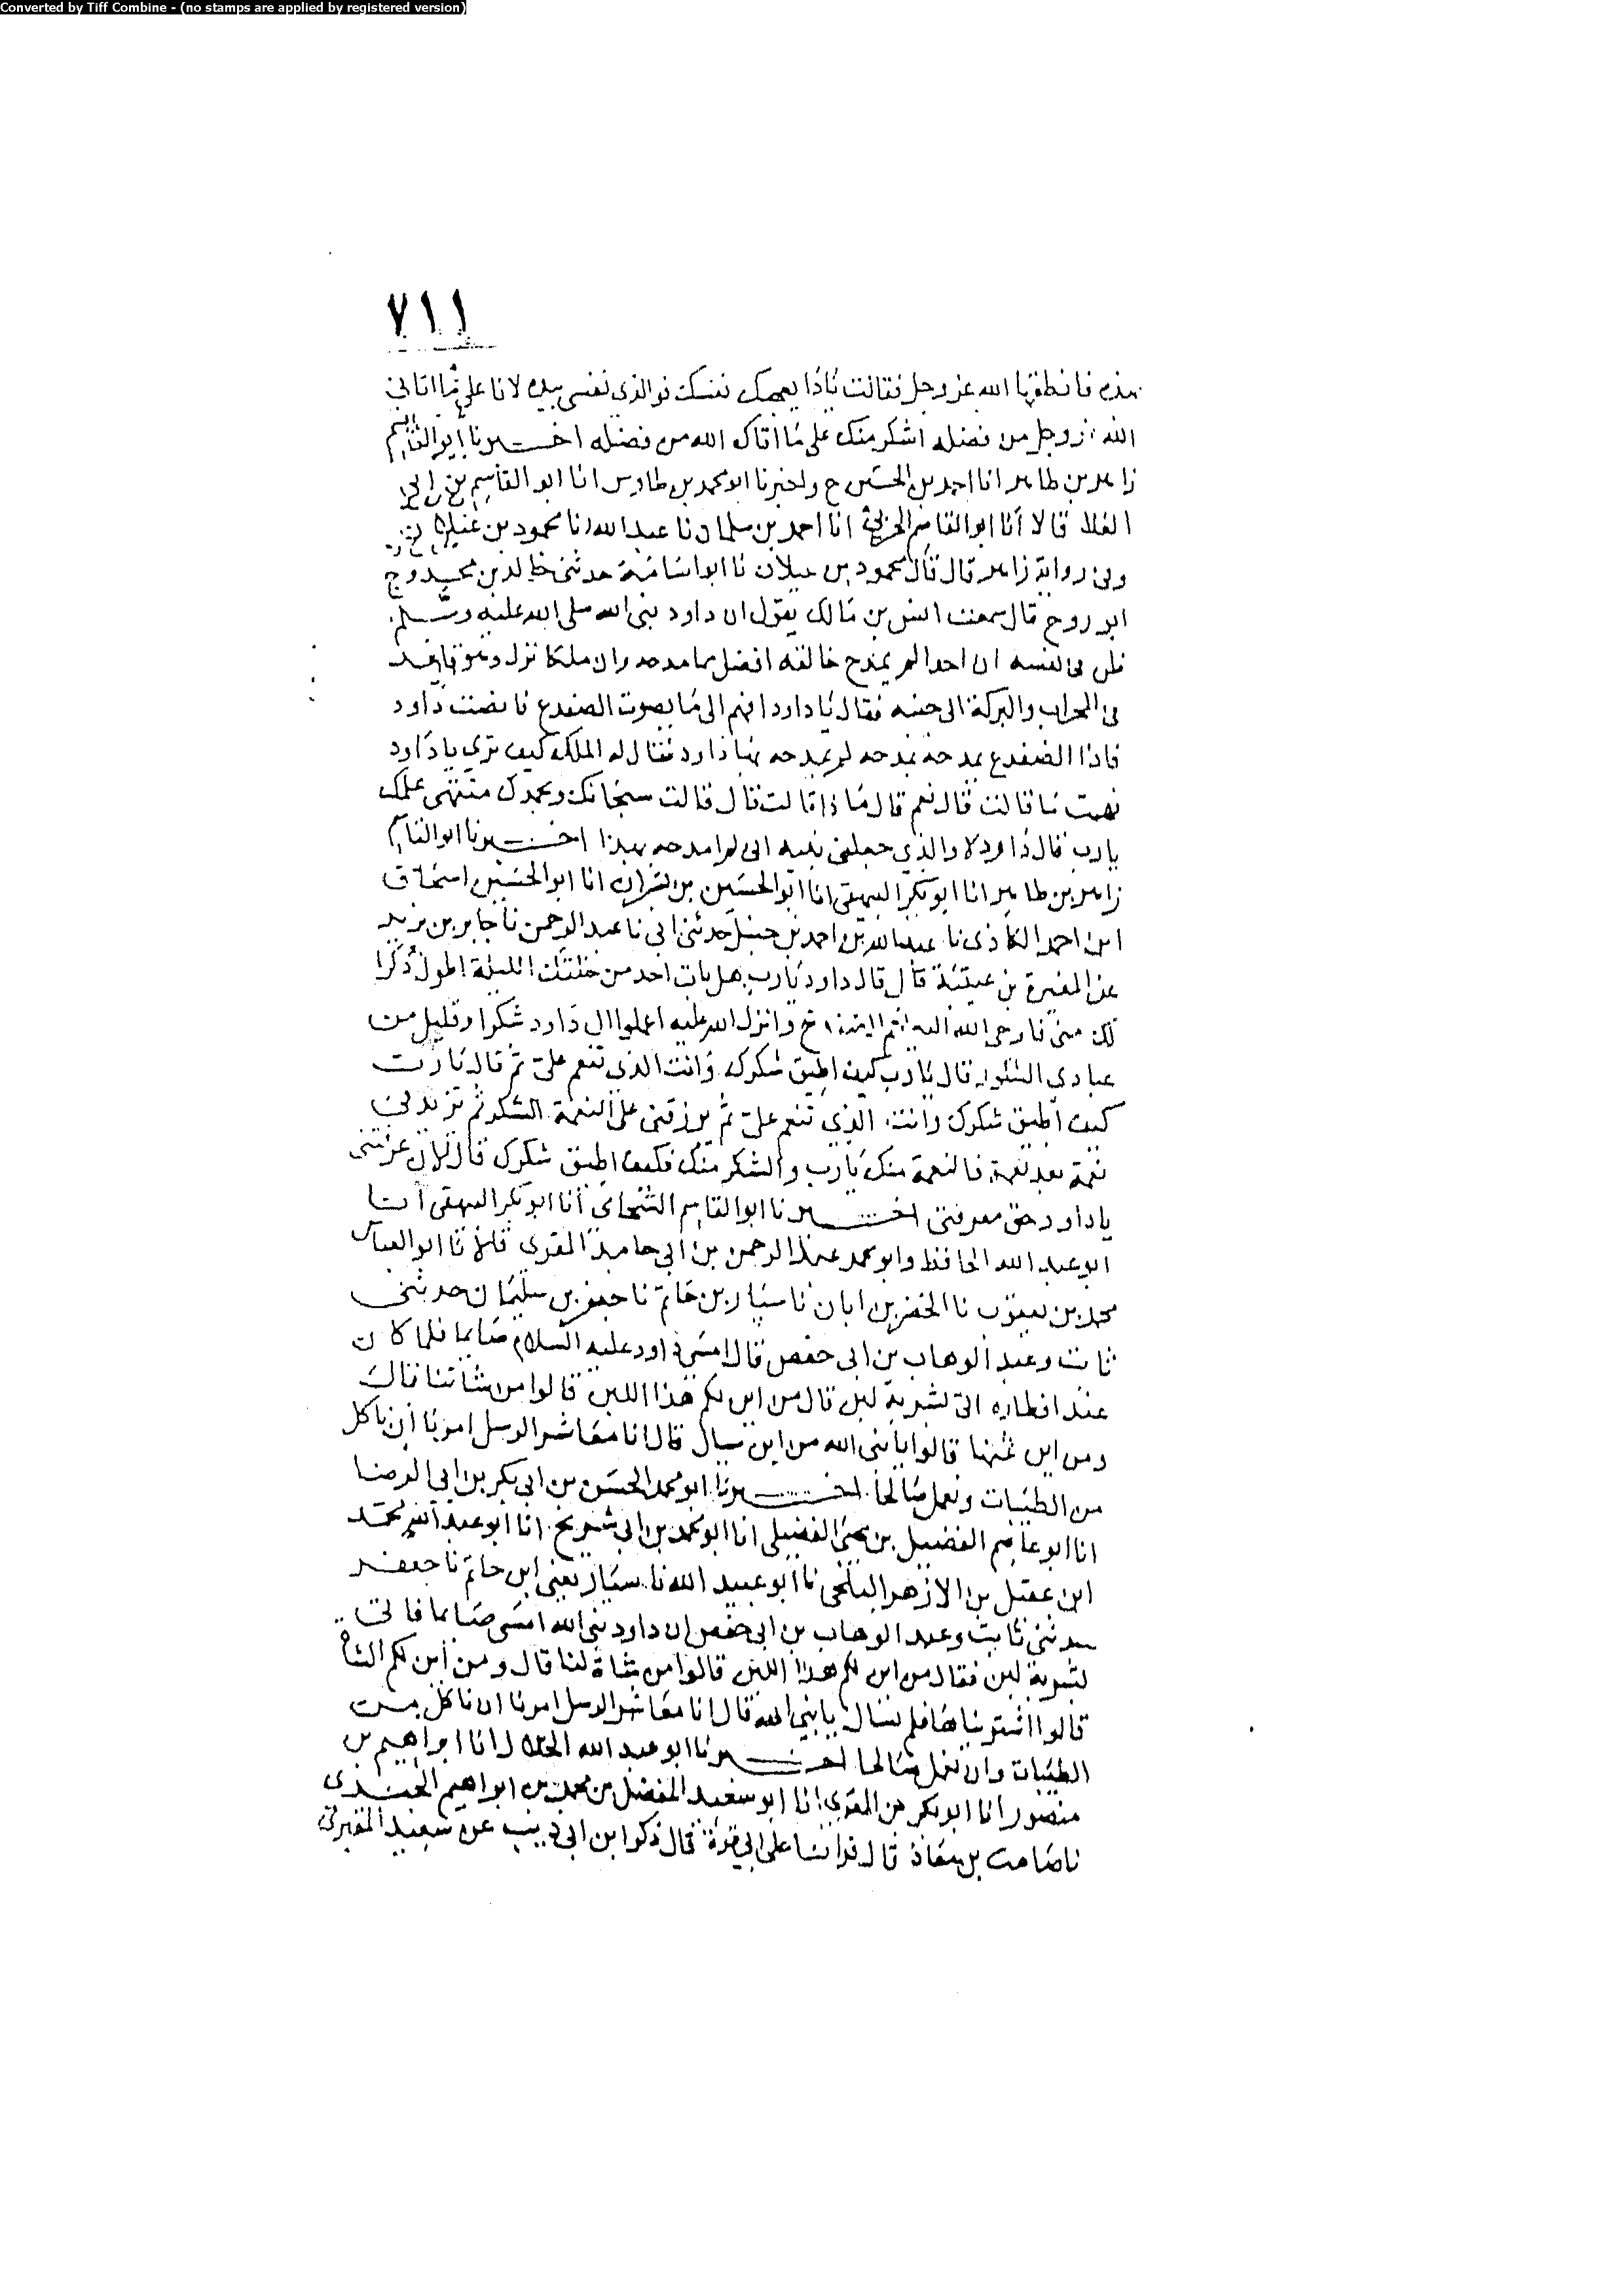 Converted by Tiff Combine - (no stamps are applied by registered version)
٧١١
بهذه فانطقها الله عز وجل فقالت يا ذا يعجبك نفسك فوالذي نفسي بيده لانا على ما اتاني
الله عز وجل من فضله اشكر منك على ما اتاك الله من فضله اخبرنا ابو القاسم
زاهر بن طاهر انا احمد بن الحسين ح واخبرنا ابو محمد بن طاوس انا ابو القاسم بن ابي
العلا قالا أنا ابو القاسم الحرفي انا احمد بن سلمان نا عبد الله نا محمود بن غيلان
وفي رواية زاهر قال قال محمود بن غيلان نا ابو اسامة حدثني خالد بن محدوج
ابو روح قال سمعت انس بن مالك يقول ان داود نبي الله صلى الله عليه وسلم
ظن في نفسه ان احدا لم يمدح خالقه افضل مما مدحه وان ملكا نزل وهو قاعد
في المحراب والبركة الى جنبه فقال يا داود افهم الى ما يصوت الضفدع فانصت داود
فاذا الضفدع يمدحه بمدحه لم يمدحه بها داود فقال له الملك كيف تري يا داود
فهمت ما قالت قال نعم قال ماذا قالت قال قالت سبحانك وبحمدك منتهى علمك
يا رب قال داود لا والذي جعلني نبيه اني لم امدحه بهذا اخبرنا ابو القاسم
زاهر بن طاهر انا ابو بكر البيهقي انا ابو الحسين بن بشران انا ابو الحسين اسحاق
ابن احمد الكاذي نا عبد الله بن احمد بن حنبل حدثني ابي نا عبد الرحمن نا جابر بن يزيد
عن المغيرة بن عيينة قال قال داود يا رب هل بات احد من خلقك الليلة اطول ذكرا
لك مني فاوحى الله اليه نعم الضفدع وانزل الله عليه اعملوا ال داود شكرا وقليل من
عبادي الشكور قال يا رب كيف اطيق شكرك وانت الذي تنعم علي ثم قال يا رب
كيف أطيق شكرك وانت الذي تنعم علي ثم يرزقني على النعمة الشكر ثم تزيدني
نعمة بعد نعمة فالنعمة منك يا رب والشكر منك فكيف اطيق شكرك قال الآن عرفتني
يا داود حق معرفتي اخبرنا ابو القاسم الشحامي أنا ابو بكر البيهقي أنا
ابو عبد الله الحافظ وابو محمد عبد الرحمن بن أبي حامد المقري قالا نا ابو العباس
محمد بن يعقوب نا الخضر بن ابان نا سيار بن حاتم نا جعفر بن سليمان حدثني
ثابت وعبد الوهاب بن ابي حفص قال امسى داود عليه السلام صايما فلما كان
عند افطاره اتي بشربة لبن قال من اين لكم هذا اللبن قالوا من شاتنا قال
ومن اين ثمنها قالوا يا نبي الله من اين تسال قال انا معاشر الرسل امرنا أن ناكل
من الطيبات ونعمل صالحا اخبرنا ابو محمد الحسن بن ابي بكر بن ابي الرضا
انا ابو عاصم الفضيل بن يحيى الفضيلي انا ابو محمد بن ابي شريح انا ابو عبد الله محمد
ابن عقيل بن الازهر البلخي نا أبو عبيد الله نا سيار يعني ابن حاتم نا جعفر
حدثني ثابت وعبد الوهاب بن ابي حفص ان داود نبي الله امسى صايما فاتي
بشربة لبن فقال من اين لكم هذا اللبن قالوا من شاة لنا قال ومن أين لكم الشاة
قالوا اشتريناها فلم تسال يا نبي الله قال انا معاشر الرسل امرنا ان ناكل من
الطيبات وان نعمل صالحا اخبرنا ابو عبد الله الخلال انا ابراهيم بن
منصور انا ابو بكر بن المقري انا ابو سعيد المفضل بن محمد بن ابراهيم الجندي
نا صامت بن معاذ قال قرانا على ابي قرة قال ذكر ابن ابي ذييب عن سعيد المقبري